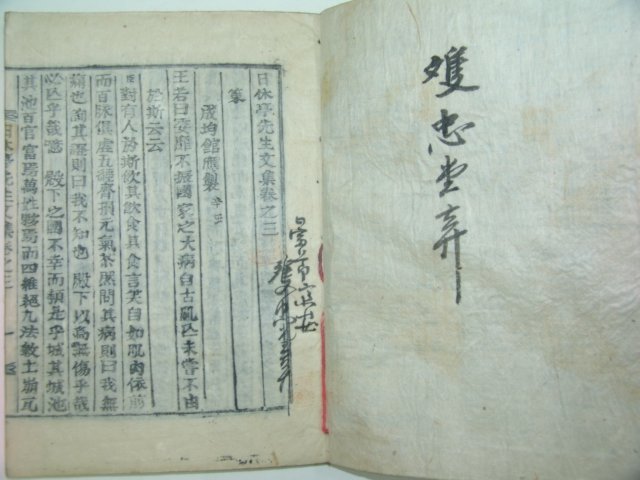 雙忠堂弃
日休亭先生文集卷之三
策
成均館應製
王若曰委靡不振國家之大病自古亂亡未嘗不由
於斯云云
對有人於斯飲其飲食其食言笑自如肌肉依舊
而百脉俱虛五臟齊損元氣茶然問其病則曰我無
病也詢其證則曰我不知也 殿下以爲無傷乎哉
必亡乎哉噫 殿下之國不幸而類是乎城其城池
其池百官富焉萬姓夥焉而四維絕九法斁土崩瓦
日休亭先生文集卷之三